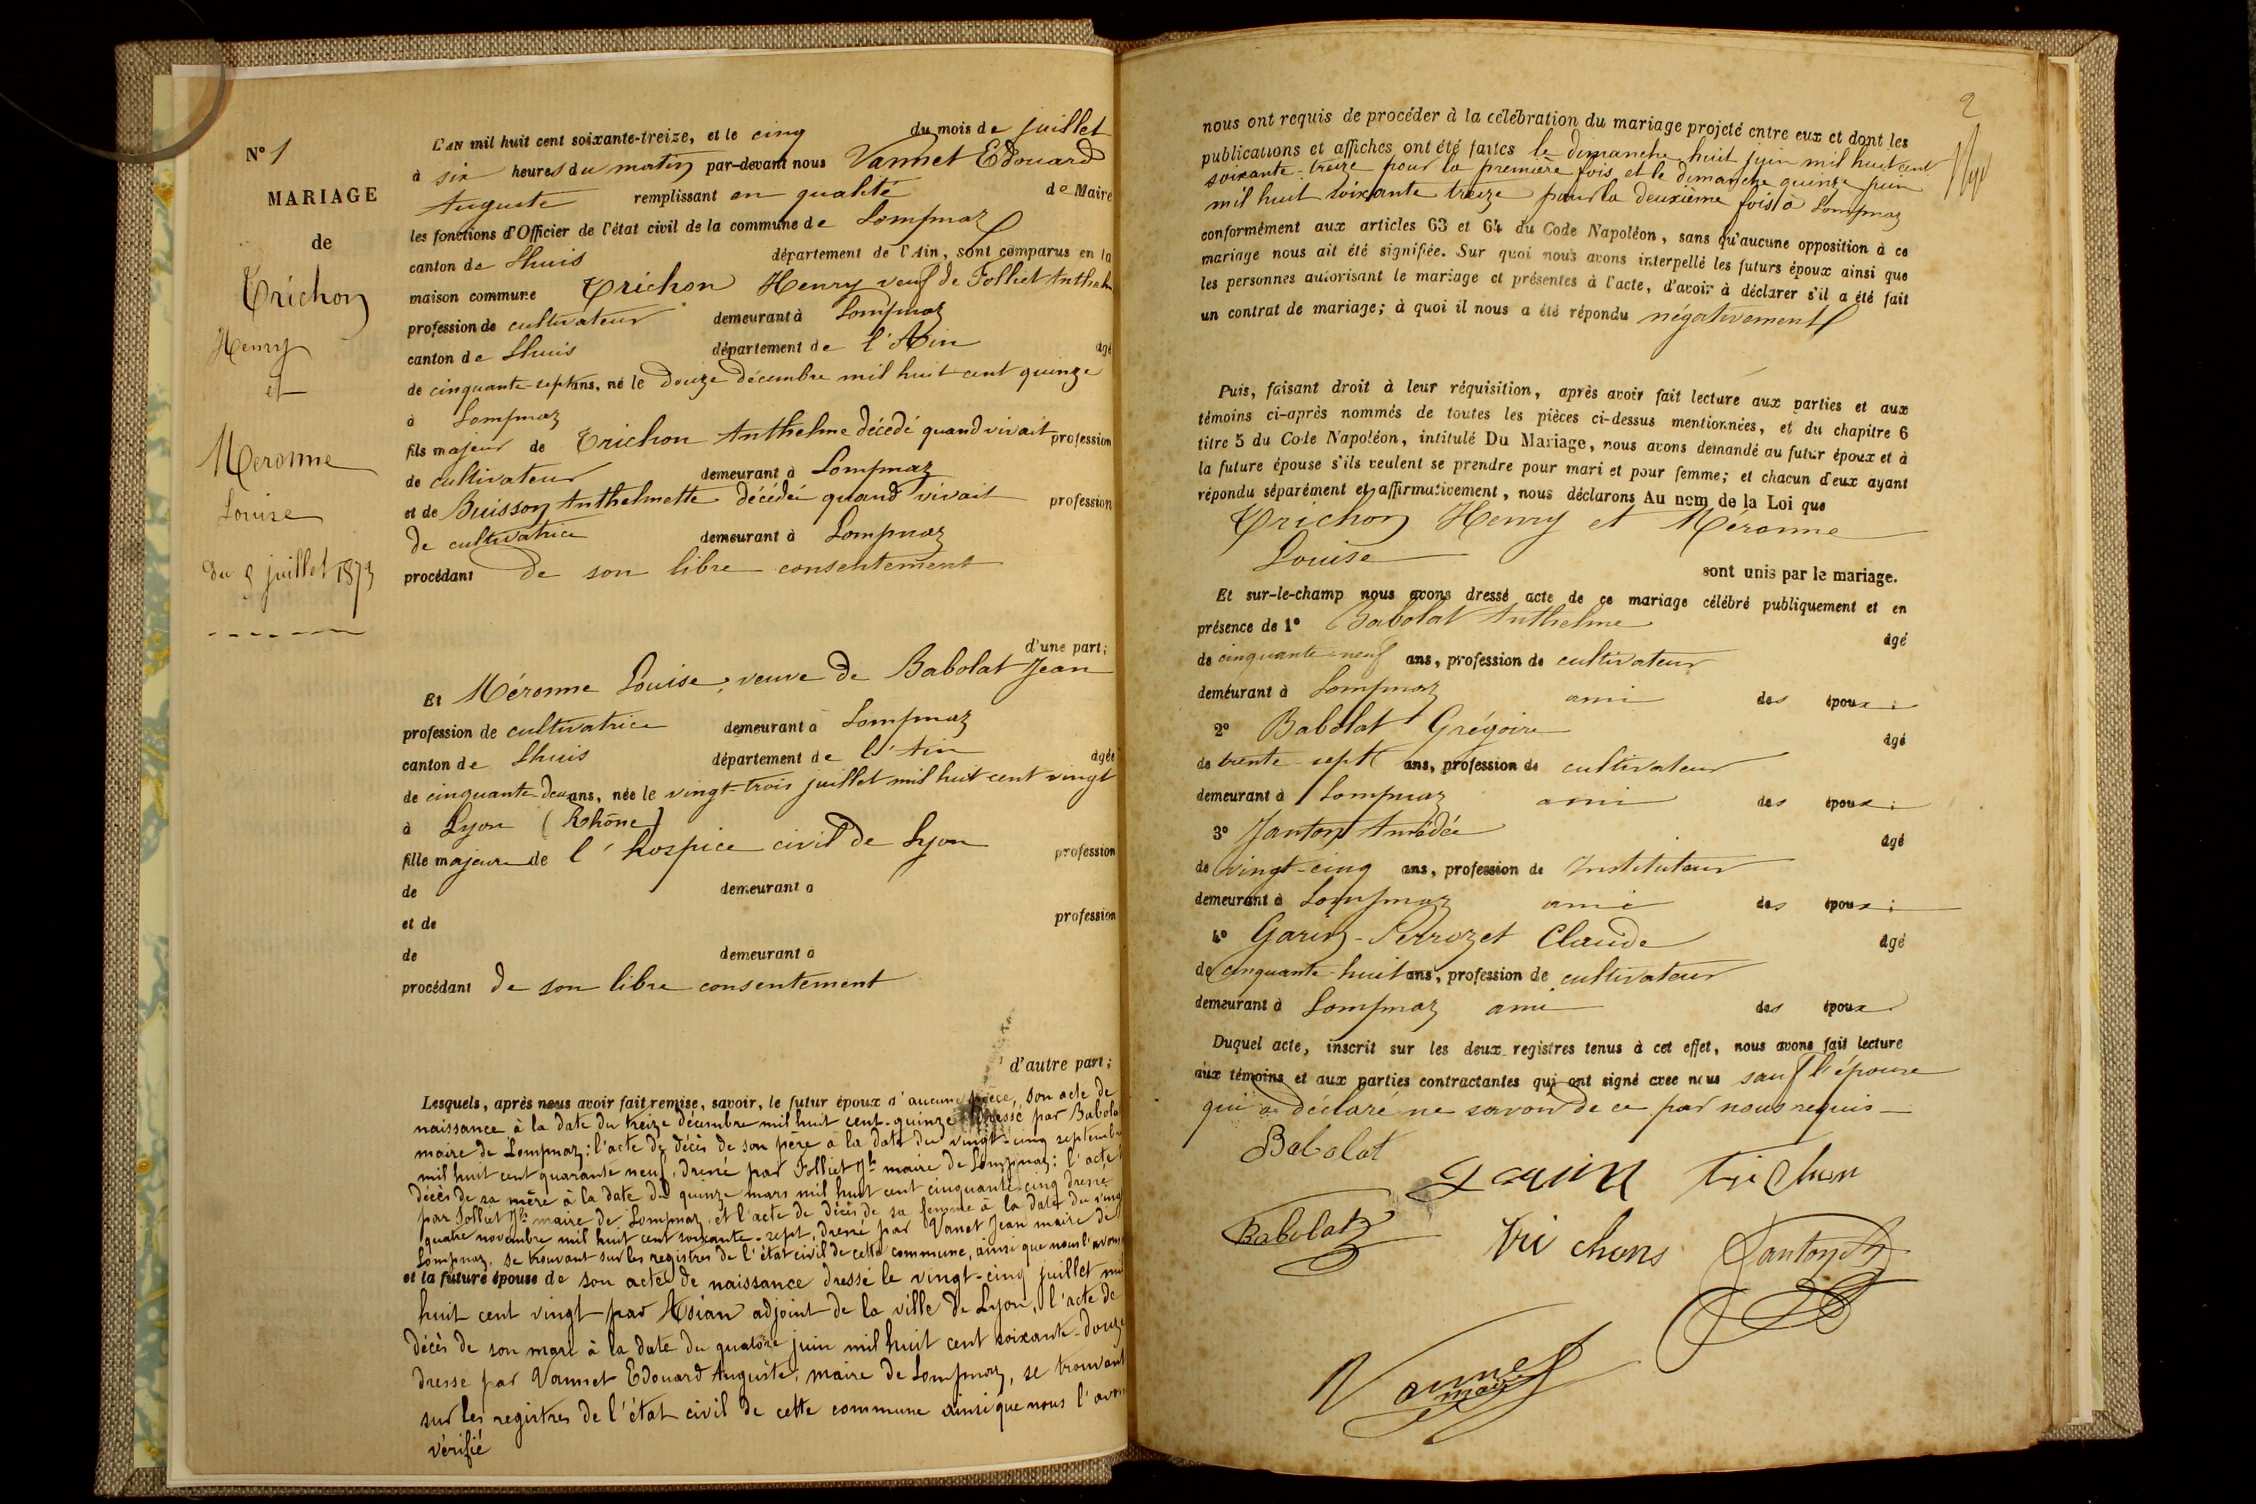 N° 1
MARIAGE
de
Trichon
Henry
et
Meronne
Louise
du 5 juillet 1873
L'AN mil huit cent soixante-treize, et le cinq du mois de juillet
à six heures du matin par-devant nous Vannet Edouard
Auguste remplissant en qualité de Maire
les fonctions d'Officier de l'état civil de la commune de Lompnaz
canton de Lhuis département de l'Ain, sont comparus en la
maison commune Trichon Henry veuf de Folliet Anthel
profession de cultivateur demeurant à Lompnaz
canton de Lhuis département de l'Ain âgé
de cinquante-sept ans, né le douze décembre mil huit cent quinze
à Lompnaz
fils majeur de Trichon Anthelme décédé quand vivait profession
de cultivateur demeurant à Lompnaz
et de Buisson Anthelmette décédée quand vivait profession
de cultivatrice demeurant à Lompnaz
procédant de son libre consentement
d'une part;
Et Méronne Louise, veuve de Babolat Jean
profession de cultivatrice demeurant à Lompnaz
canton de Lhuis département de l'Ain âgée
de cinquante deux ans, née le vingt-trois juillet mil huit cent vingt
à Lyon (Rhône)
fille majeure de l'hospice civil de Lyon profession
de demeurant à
et de profession
de demeurant à
procédant de son libre consentement
d'autre part;
Lesquels, après nous avoir fait remise, savoir, le futur époux d'aucune pièce, son acte de
naissance à la date du treize décembre mil huit cent quinze dressé par Babola
maire de Lompnaz; l'acte de décès de son père à la date du vingt-cinq septembre
mil huit cent quarante neuf, dressé par Folliet Jh maire de Lompnaz; l'acte
décès de sa mère à la date du quinze mars mil huit cent cinquante cinq dressé
par Folliet Jh maire de Lompnaz, et l'acte de décès de sa femme à la date du ving
quatre novembre mil huit cent soixante-sept, dressé par Vanet Jean maire de
Lompnaz, se trouvant sur les registres de l'état civil de cette commune, ainsi que nous l'avons
et la future épouse de son acte de naissance dressé le vingt-cinq juillet mil
huit cent vingt par adjoint de la ville de Lyon, l'acte de
décès de son mari à la date du quatorze juin mil huit cent soixante-douze
dressé par Vannet Edouard Auguste, maire de Lompnaz, se trouvant
sur les registres de l'état civil de cette commune ainsi que nous l'avons
vérifié
2
nous ont requis de procéder à la célébration du mariage projeté entre eux et dont les
publications et affiches ont été faites le dimanche huit juin mil huit cent
soixante-treize pour la première fois et le dimanche quinze juin
mil huit soixante treize pour la deuxième fois à Lompnaz
conformément aux articles 63 et 64 du Code Napoléon, sans qu'aucune opposition à ce
mariage nous ait été signifiée. Sur quoi nous avons interpellé les futurs époux ainsi que
les personnes autorisant le mariage et présentes à l'acte, d'avoir à déclarer s'il a été fait
un contrat de mariage; à quoi il nous a été répondu négativement
Puis, faisant droit à leur réquisition, après avoir fait lecture aux parties et aux
témoins ci-après nommés de toutes les pièces ci-dessus mentionnées, et du chapitre 6
titre 5 du Code Napoléon, intitulé Du Mariage, nous avons demandé au futur époux et à
la future épouse s'ils veulent se prendre pour mari et pour femme; et chacun d'eux ayant
répondu séparément et affirmativement, nous déclarons Au nom de la Loi que
Trichon Henry et Méronne
Louise
sont unis par le mariage.
Et sur-le-champ nous avons dressé acte de ce mariage célébré publiquement et en
présence de 1° Babolat Anthelme âgé
de cinquante-neuf ans, profession de cultivateur
demeurant à Lompnaz ami des époux;
2° Babolat Grégoire âgé
de trente-sept ans, profession de cultivateur
demeurant à Lompnaz ami des époux;
3° Janton Amédée âgé
de vingt-cinq ans, profession de Instituteur
demeurant à Lompnaz ami des époux;
4° Garin-Perrozet Claude âgé
de cinquante-huit ans, profession de cultivateur
demeurant à Lompnaz ami des époux
Duquel acte, inscrit sur les deux registres tenus à cet effet, nous avons fait lecture
aux témoins et aux parties contractantes qui ont signé avec nous sauf l'épouse
qui a déclaré ne savoir de ce par nous requis
Babolat
garin trichon
Babolat
tri chons Janton
Vannet
maire